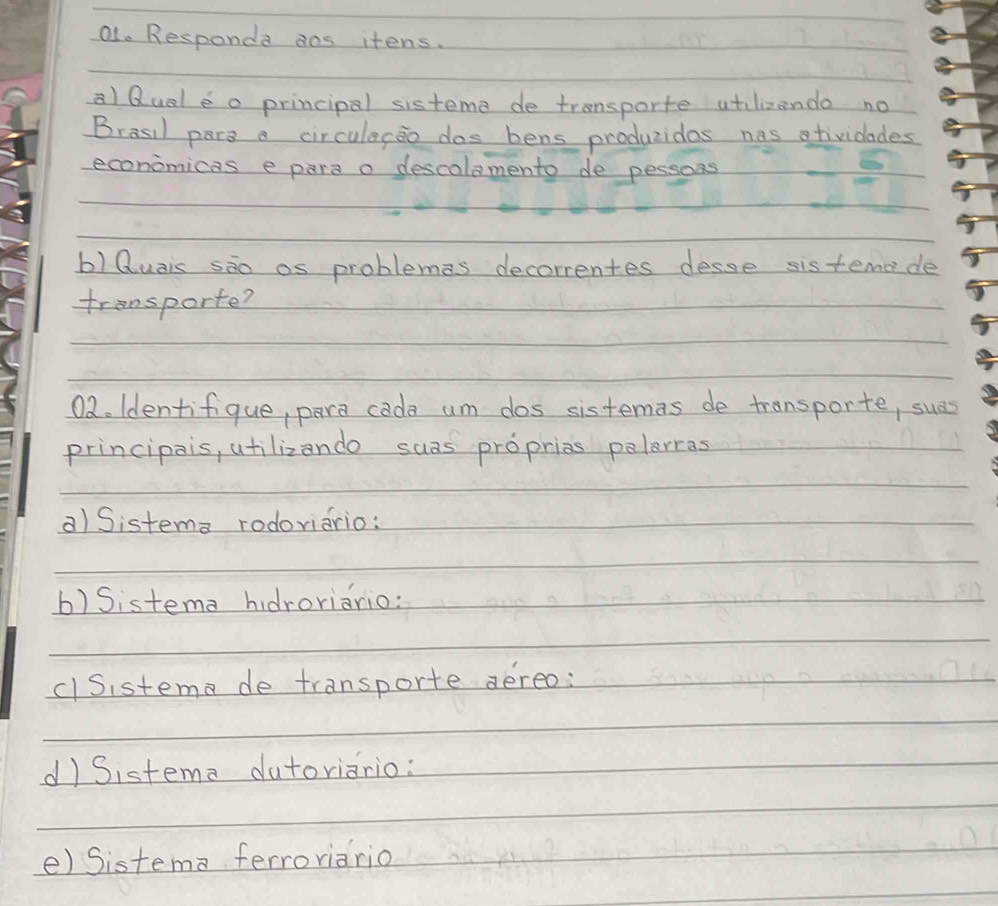 01. Responda aos itens.
a) Qual é o principal sistema de transporte utilizando no
Brasil para a circulação dos bens produzidos nas atividades
econômicas e para o descolamento de pessoas
b) Quais são os problemas decorrentes desse sistema de
transporte?
02. Identifique, para cada um dos sistemas de transporte, suas
principais, utilizando suas próprias palavras
a) Sistema rodoviário:
b) Sistema hidroviário:
c) Sistema de transporte aéreo:
d) Sistema dutoviário:
e) Sistema ferroviário